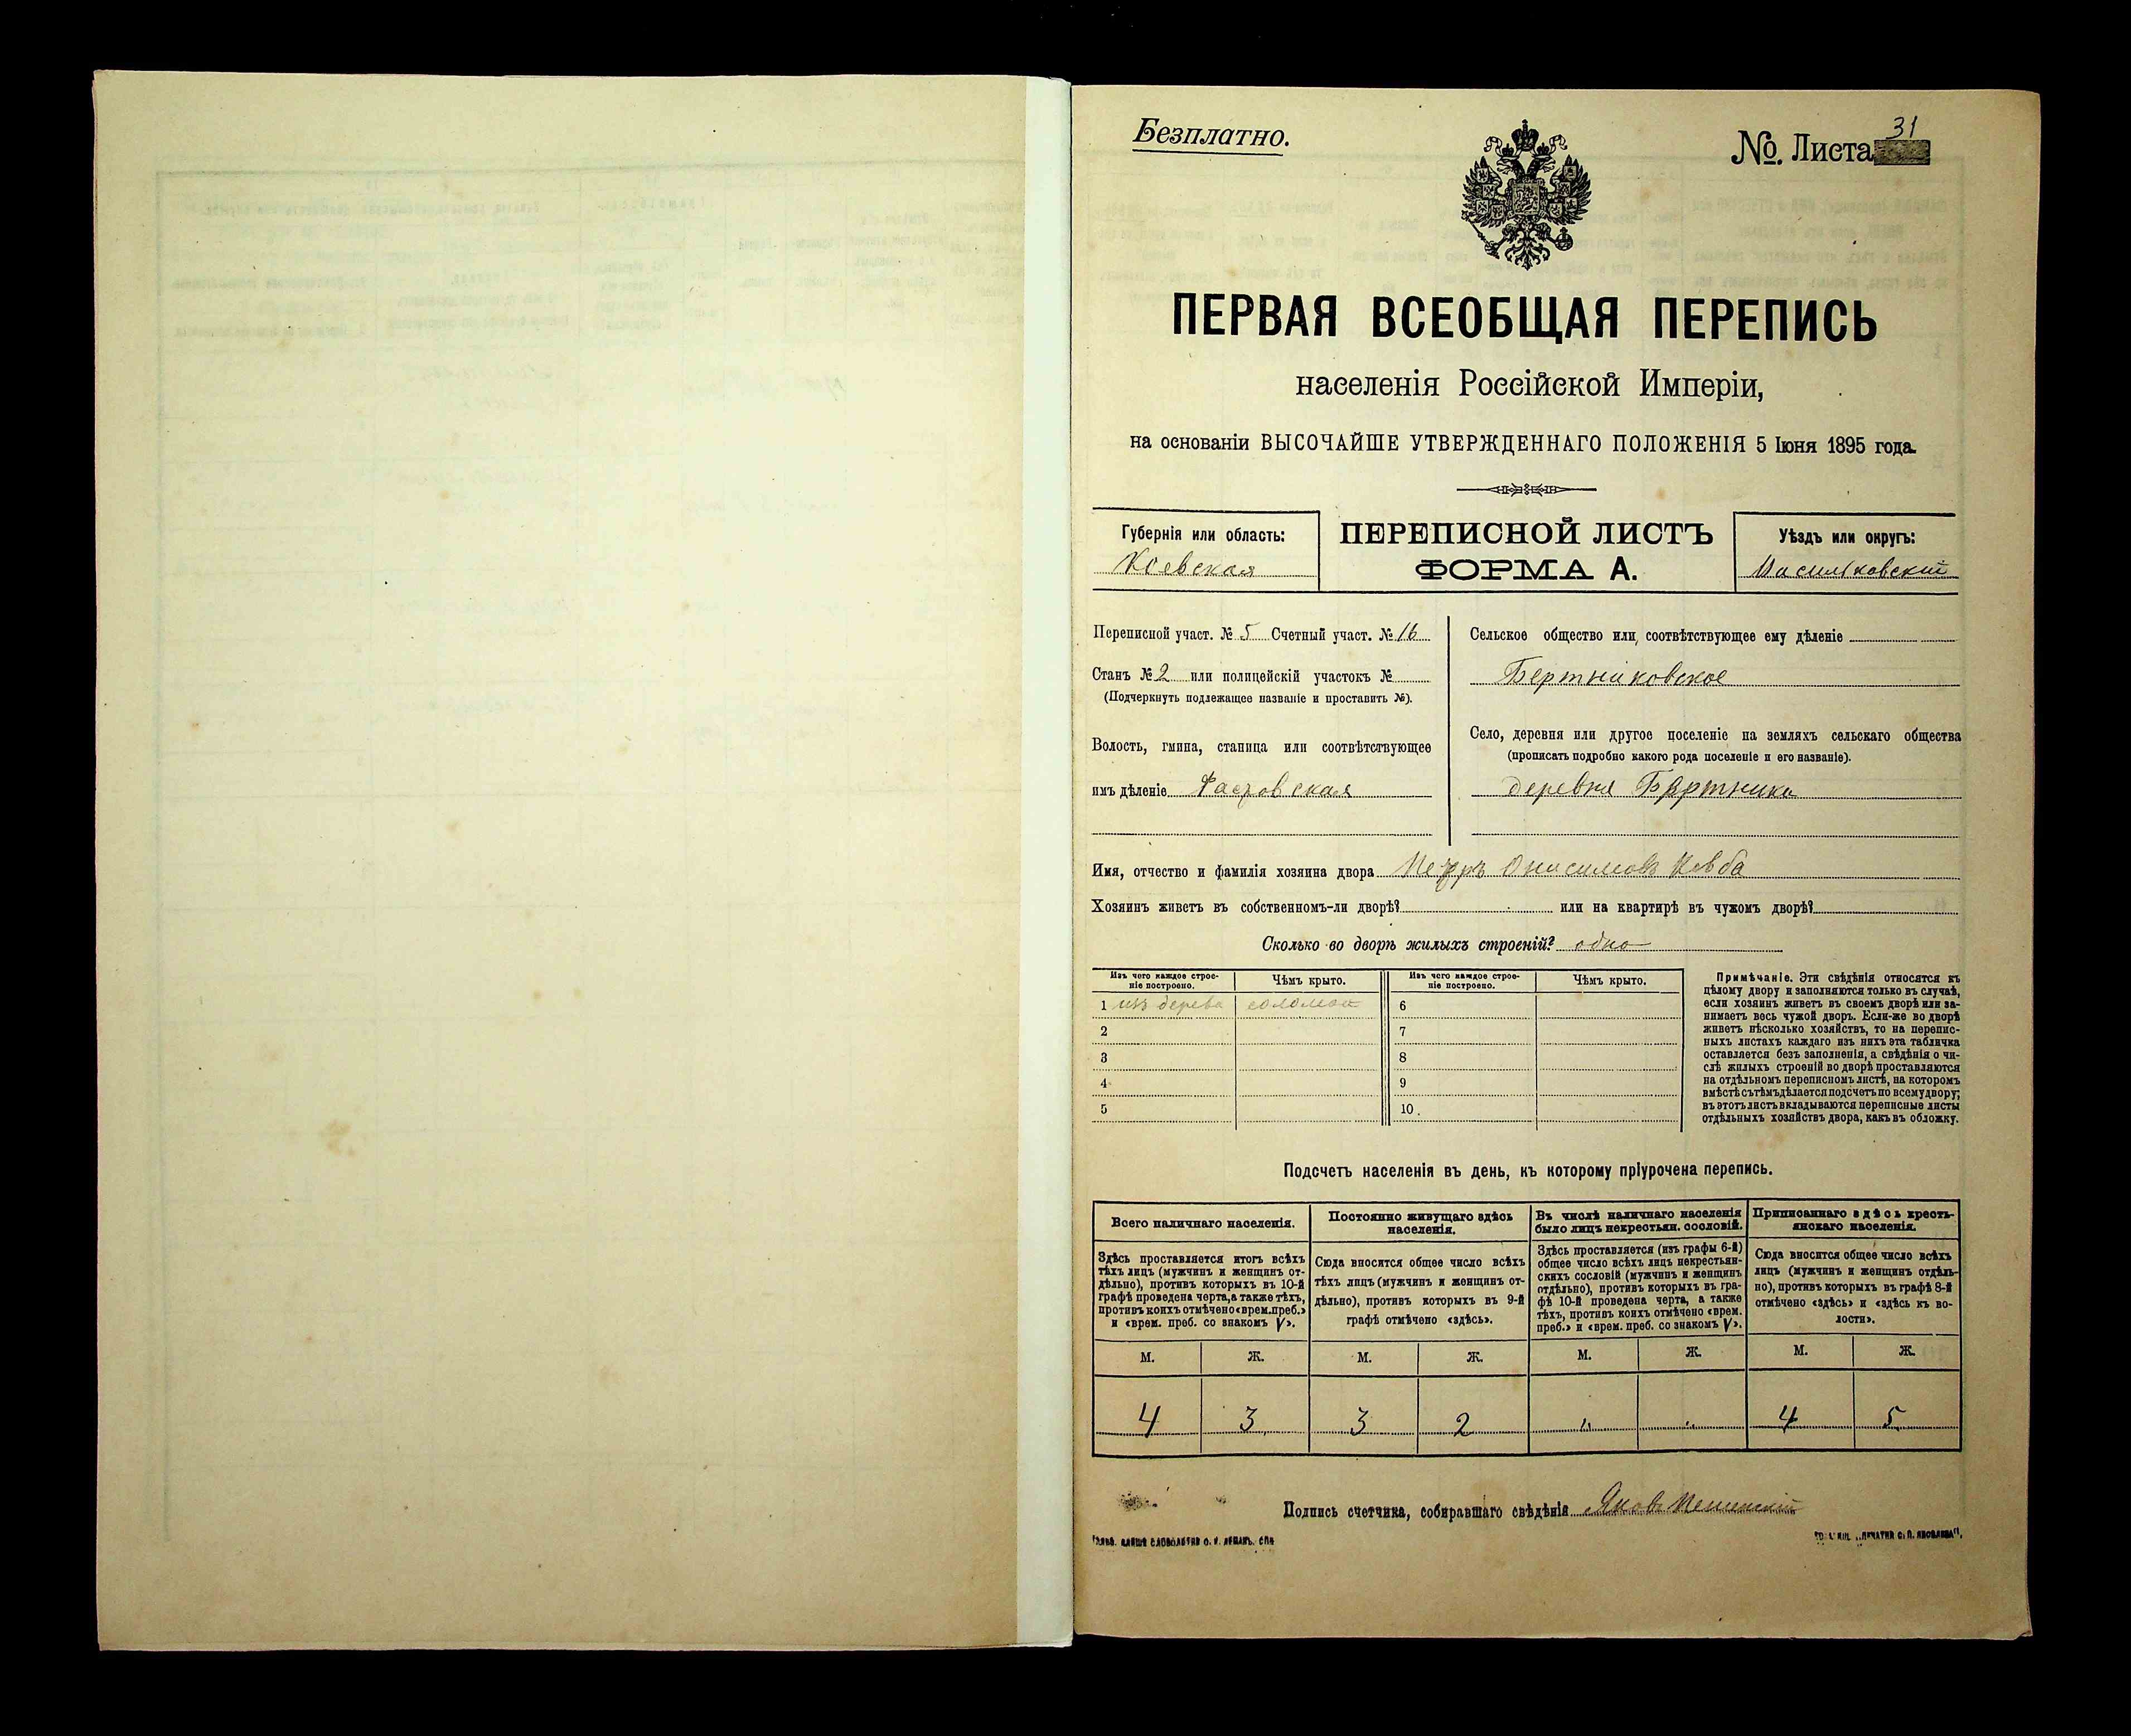 Безплатно.
№. Листа 31
ПЕРВАЯ ВСЕОБЩАЯ ПЕРЕПИСЬ
населенія Россійской Имперіи,
на основаніи ВЫСОЧАЙШЕ УТВЕРЖДЕННАГО ПОЛОЖЕНІЯ 5 Іюня 1895 года.
Губернія или область:
Кіевская
ПЕРЕПИСНОЙ ЛИСТЪ
ФОРМА А.
Уѣздъ или округъ:
Васильковскій
Переписной участ. № 5 Счетный участ. № 16
Станъ № 2 или полицейскій участокъ №
(Подчеркнуть подлежащее названіе и проставить №).
Волость, гмина, станица или соотвѣтствующее
имъ дѣленіе Фастовская
Сельское общество или соотвѣтствующее ему дѣленіе
Бертниковское
Село, деревня или другое поселеніе на земляхъ сельскаго общества
(прописать подробно какого рода поселеніе и его названіе).
деревня Бертники
Имя, отчество и фамилія хозяина двора Петръ Онисимовъ
Хозяинъ живетъ въ собственномъ-ли дворѣ? или на квартирѣ въ чужомъ дворѣ?
Сколько во дворѣ жилыхъ строеній? одно
Изъ чего каждое строе-
ніе построено.
Чѣмъ крыто.
Изъ чего каждое строе-
ніе построено.
Чѣмъ крыто.
1 изъ дерева соломой 6
2 7
3 8
4 9
5 10
Примѣчаніе. Эти свѣдѣнія относятся къ
цѣлому двору и заполняются только въ случаѣ,
если хозяинъ живетъ въ своемъ дворѣ или за-
нимаетъ весь чужой дворъ. Если-же во дворѣ
живетъ нѣсколько хозяйствъ, то на перепис-
ныхъ листахъ каждаго изъ нихъ эта табличка
оставляется безъ заполненія, а свѣдѣнія о чи-
слѣ жилыхъ строеній во дворѣ проставляются
на отдѣльномъ переписномъ листѣ, на которомъ
вмѣстѣ съ тѣмъ дѣлается подсчетъ по всему двору;
въ этотъ листъ вкладываются переписные листы
отдѣльныхъ хозяйствъ двора, какъ въ обложку.
Подсчетъ населенія въ день, къ которому пріурочена перепись.
Всего наличнаго населенія.
Здѣсь проставляется итогъ всѣхъ
тѣхъ лицъ (мужчинъ и женщинъ от-
дѣльно), противъ которыхъ въ 10-й
графѣ проведена черта, а также тѣхъ,
противъ коихъ отмѣчено «врем. преб.»
и «врем. преб. со знакомъ V».
Постоянно живущаго здѣсь
населенія.
Сюда вносится общее число всѣхъ
тѣхъ лицъ (мужчинъ и женщинъ от-
дѣльно), противъ которыхъ въ 9-й
графѣ отмѣчено «здѣсь».
Въ числѣ наличнаго населенія
было лицъ некрестьян. сословій.
Здѣсь проставляется (изъ графы 6-й)
общее число всѣхъ лицъ некрестьян-
скихъ сословій (мужчинъ и женщинъ
отдѣльно), противъ которыхъ въ гра-
фѣ 10-й проведена черта, а также
тѣхъ, противъ коихъ отмѣчено «врем.
преб.» и «врем. преб. со знакомъ V».
Приписаннаго здѣсь кресть-
янскаго населенія.
Сюда вносится общее число всѣхъ
лицъ (мужчинъ и женщинъ отдѣль-
но), противъ которыхъ въ графѣ 8-й
отмѣчено «здѣсь» и «здѣсь къ во-
лости».
М. Ж. М. Ж. М. Ж. М. Ж.
4 3 3 2 " " 4 5
Подпись счетчика, собиравшаго свѣдѣнія Яковъ